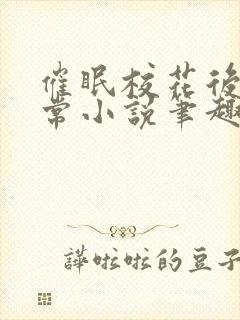 催眠校花後
常小說筆趣
譁啦啦的豆子